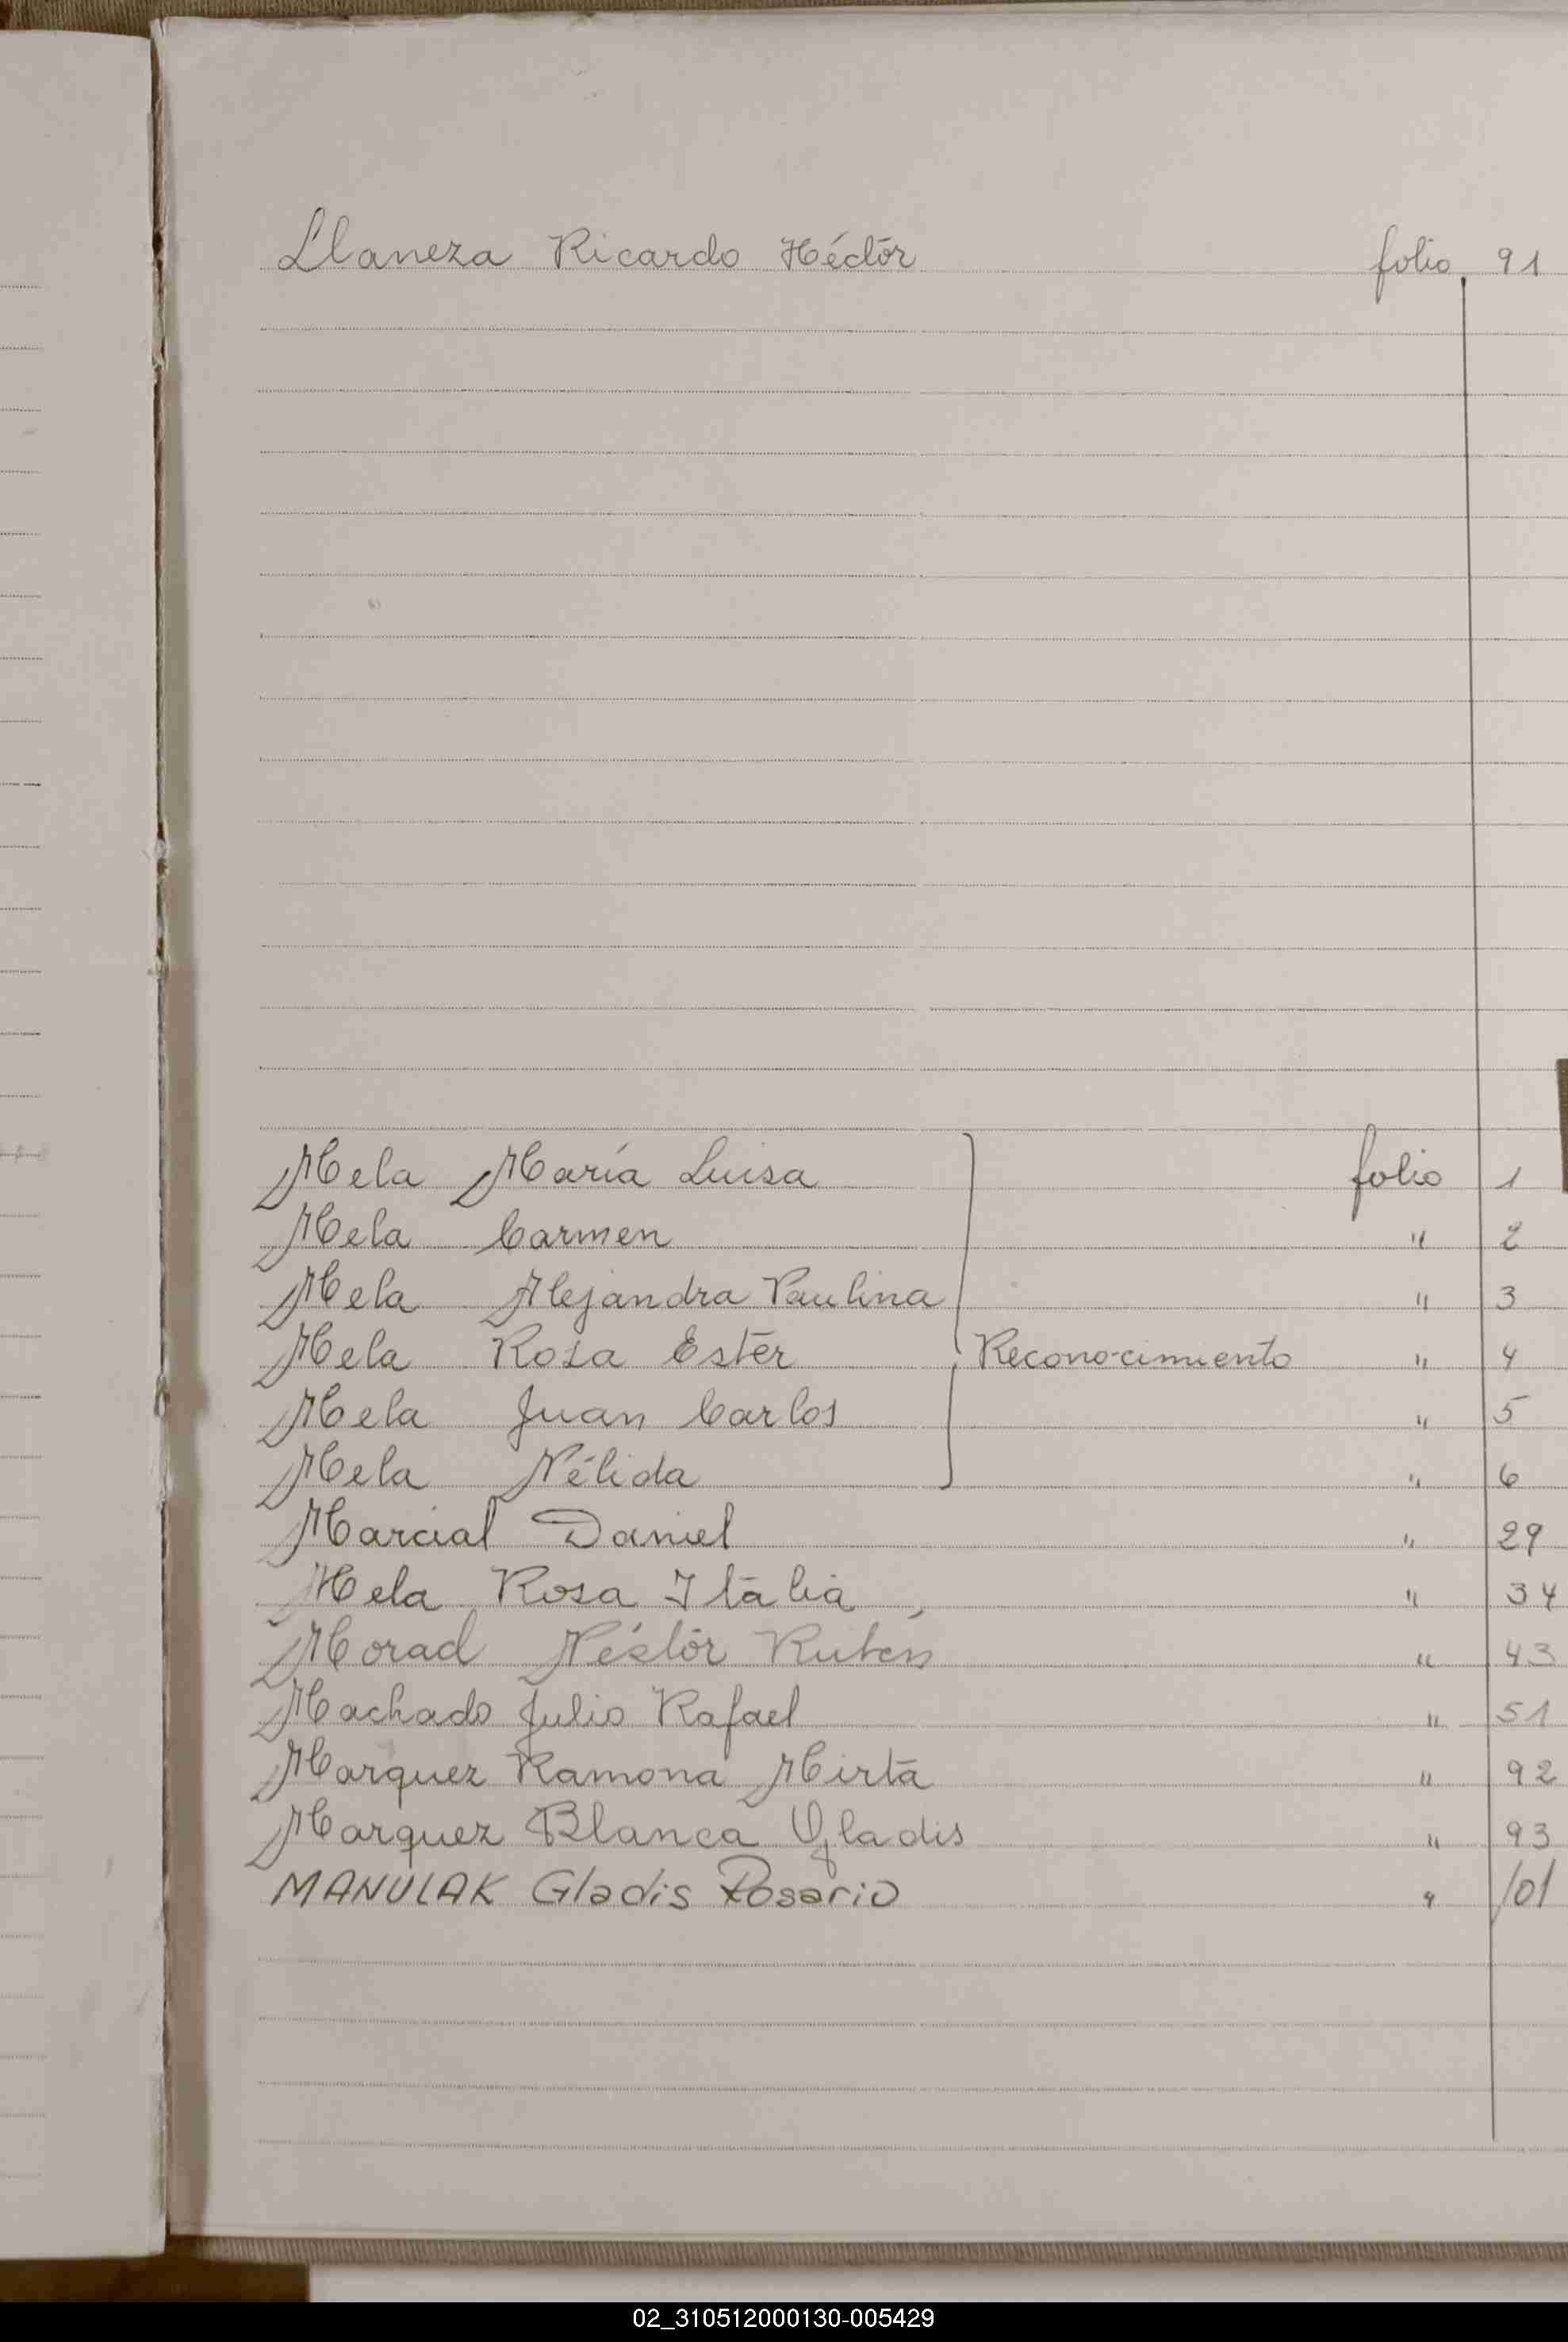 Llaneza Ricardo Héctor folio 91
Mela María Luisa folio 1
Mela Carmen " 2
Mela Alejandra Paulina " 3
Mela Rosa Ester Reconocimiento " 4
Mela Juan Carlos " 5
Mela Nélida " 6
Marcial Daniel " 29
Mela Rosa Itália " 34
Morad Néstor Rubén " 43
Machado Julio Rafael " 51
Marquez Ramona Mirta " 92
Marquez Blanca Gladis " 93
MANULAK Gladis Rosario " 101
02_310512000130-005429